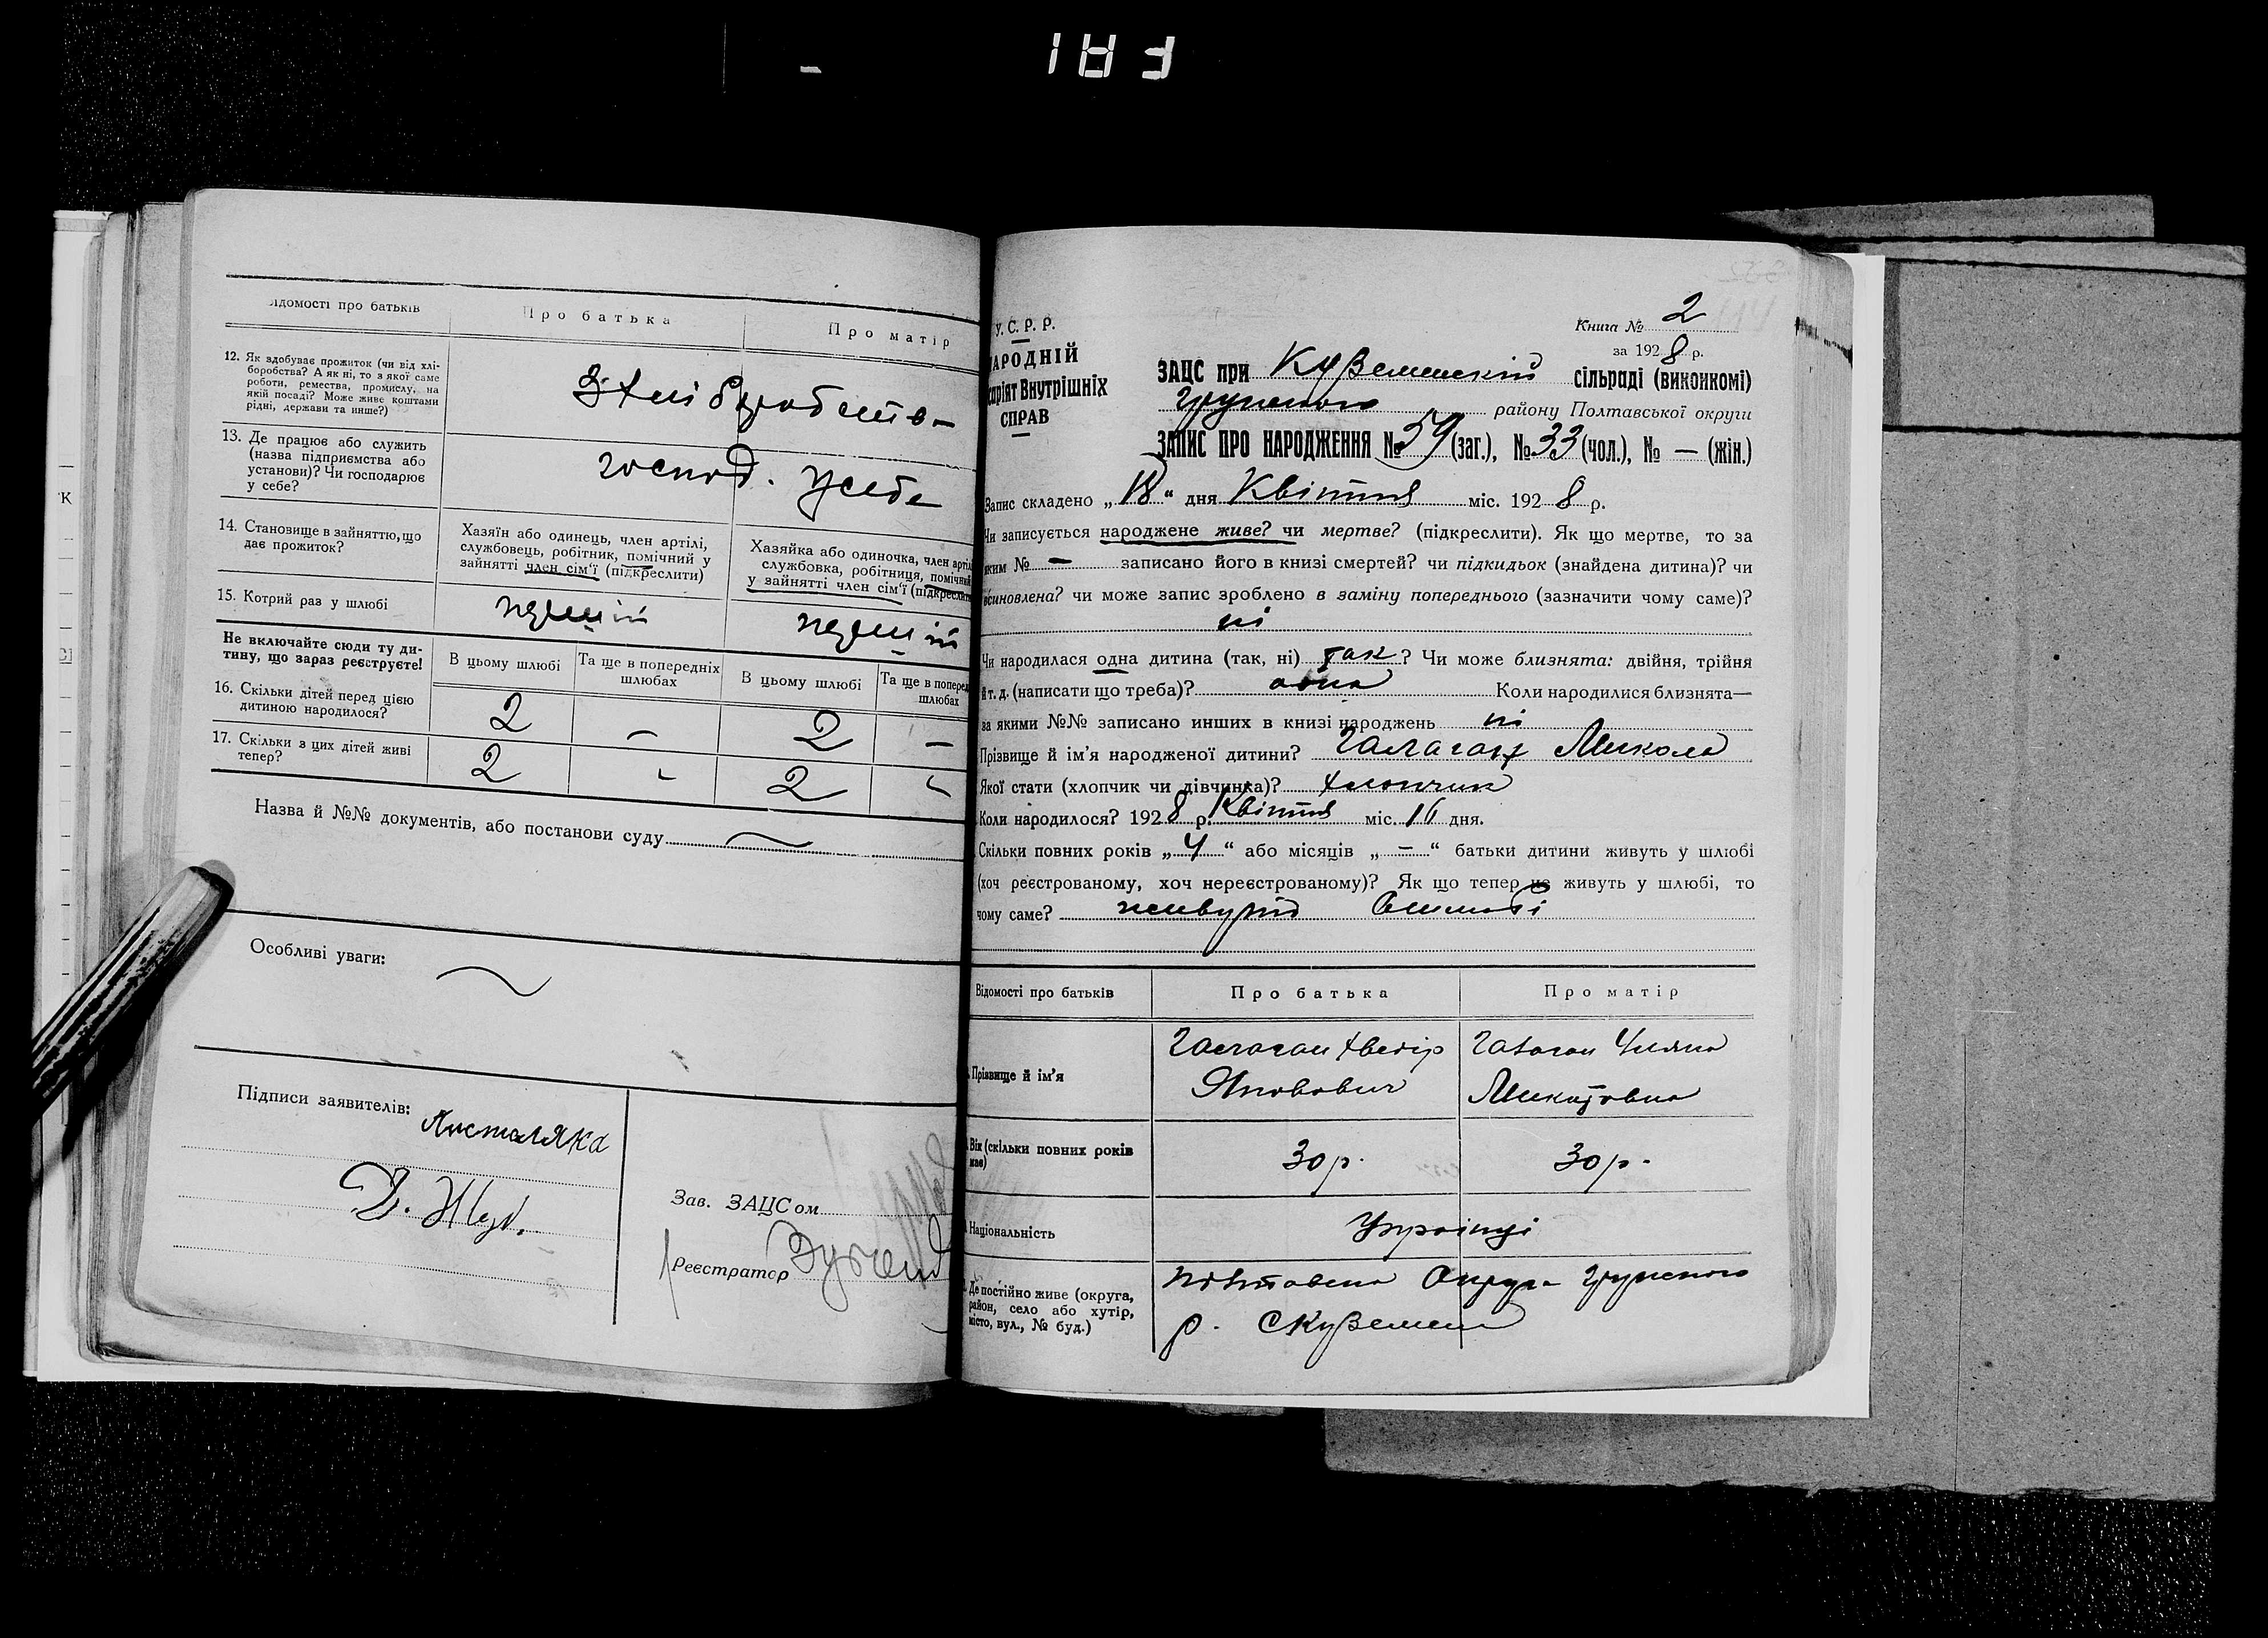 183
Відомості про батьків
Про батька
Про матір
12. Як здобуває прожиток (чи від хлі-
боробства? А як ні, то з якої саме
роботи, ремества, промислу, на
якій посаді? Може живе коштами
рідні, держави та инше?)
З хліборобства
13. Де працює або служить
(назва підприємства або
установи)? Чи господарює
у себе?
господ. усебе
14. Становище в зайняттю, що
дає прожиток?
Хазяїн або одинець, член артілі,
службовець, робітник, помічний у
зайнятті член сім'ї (підкреслити)
Хазяйка або одиночка, член артіл
службовка, робітниця, помічний
у зайнятті член сім'ї (підкреслити
15. Котрий раз у шлюбі
перший
перший
Не включайте сюди ту ди-
тину, що зараз реєструєте!
В цьому шлюбі
Та ще в попередніх
шлюбах
В цьому шлюбі
Та ще в поперед
шлюбах
16. Скільки дітей перед цією
дитиною народилося?
2 – 2 –
17. Скільки з цих дітей живі
тепер?
2 2
Назва й №№ документів, або постанови суду
Особливі уваги:
Підписи заявителів:
Д.
Зав. ЗАЦСом
Реєстратор
У. С. Р. Р.
АРОДНІЙ
СПРАВ
Книга № 2
за 1928 р.
ЗАЦС при Куземенскій сільраді (виконкомі)
Грунского району Полтавської округи
ЗАПИС ПРО НАРОДЖЕННЯ № 59 (заг.), № 33 (чол.), № — (жін.)
Запис складено „18“ дня Квітня міс. 1928 р.
Чи записується народжене живе? чи мертве? (підкреслити). Як що мертве, то за
яким № – записано його в книзі смертей? чи підкидьок (знайдена дитина)? чи
всиновлена? чи може запис зроблено в заміну попереднього (зазначити чому саме)?
ні
Чи народилася одна дитина (так, ні) так? Чи може близнята: двійня, трійня
й т. д. (написати що треба)? одна Коли народилися близнята—
за якими №№ записано инших в книзі народжень ні
Прізвище й ім'я народженої дитини? Галаган Микола
Якої стати (хлопчик чи дівчинка)? хлопчик
Коли народилося? 1928 р. Квітня міс. 16 дня.
Скільки повних років „4“ або місяців „–“ батьки дитини живуть у шлюбі
(хоч реєстрованому, хоч нереєстрованому)? Як що тепер не живуть у шлюбі, то
чому саме? живуть
Відомості про батьків
Про батька
Про матір
Прізвище й ім'я
Галаган Хведір
Яковович
Галаган Уляна
Микитовна
Вік (скільки повних років
має)
30 р.
30 р.
Національність
Українці
Де постійно живе (округа,
район, село або хутір,
місто, вул., № буд.)
Полтавска Округа Грунского
р. с Куземен